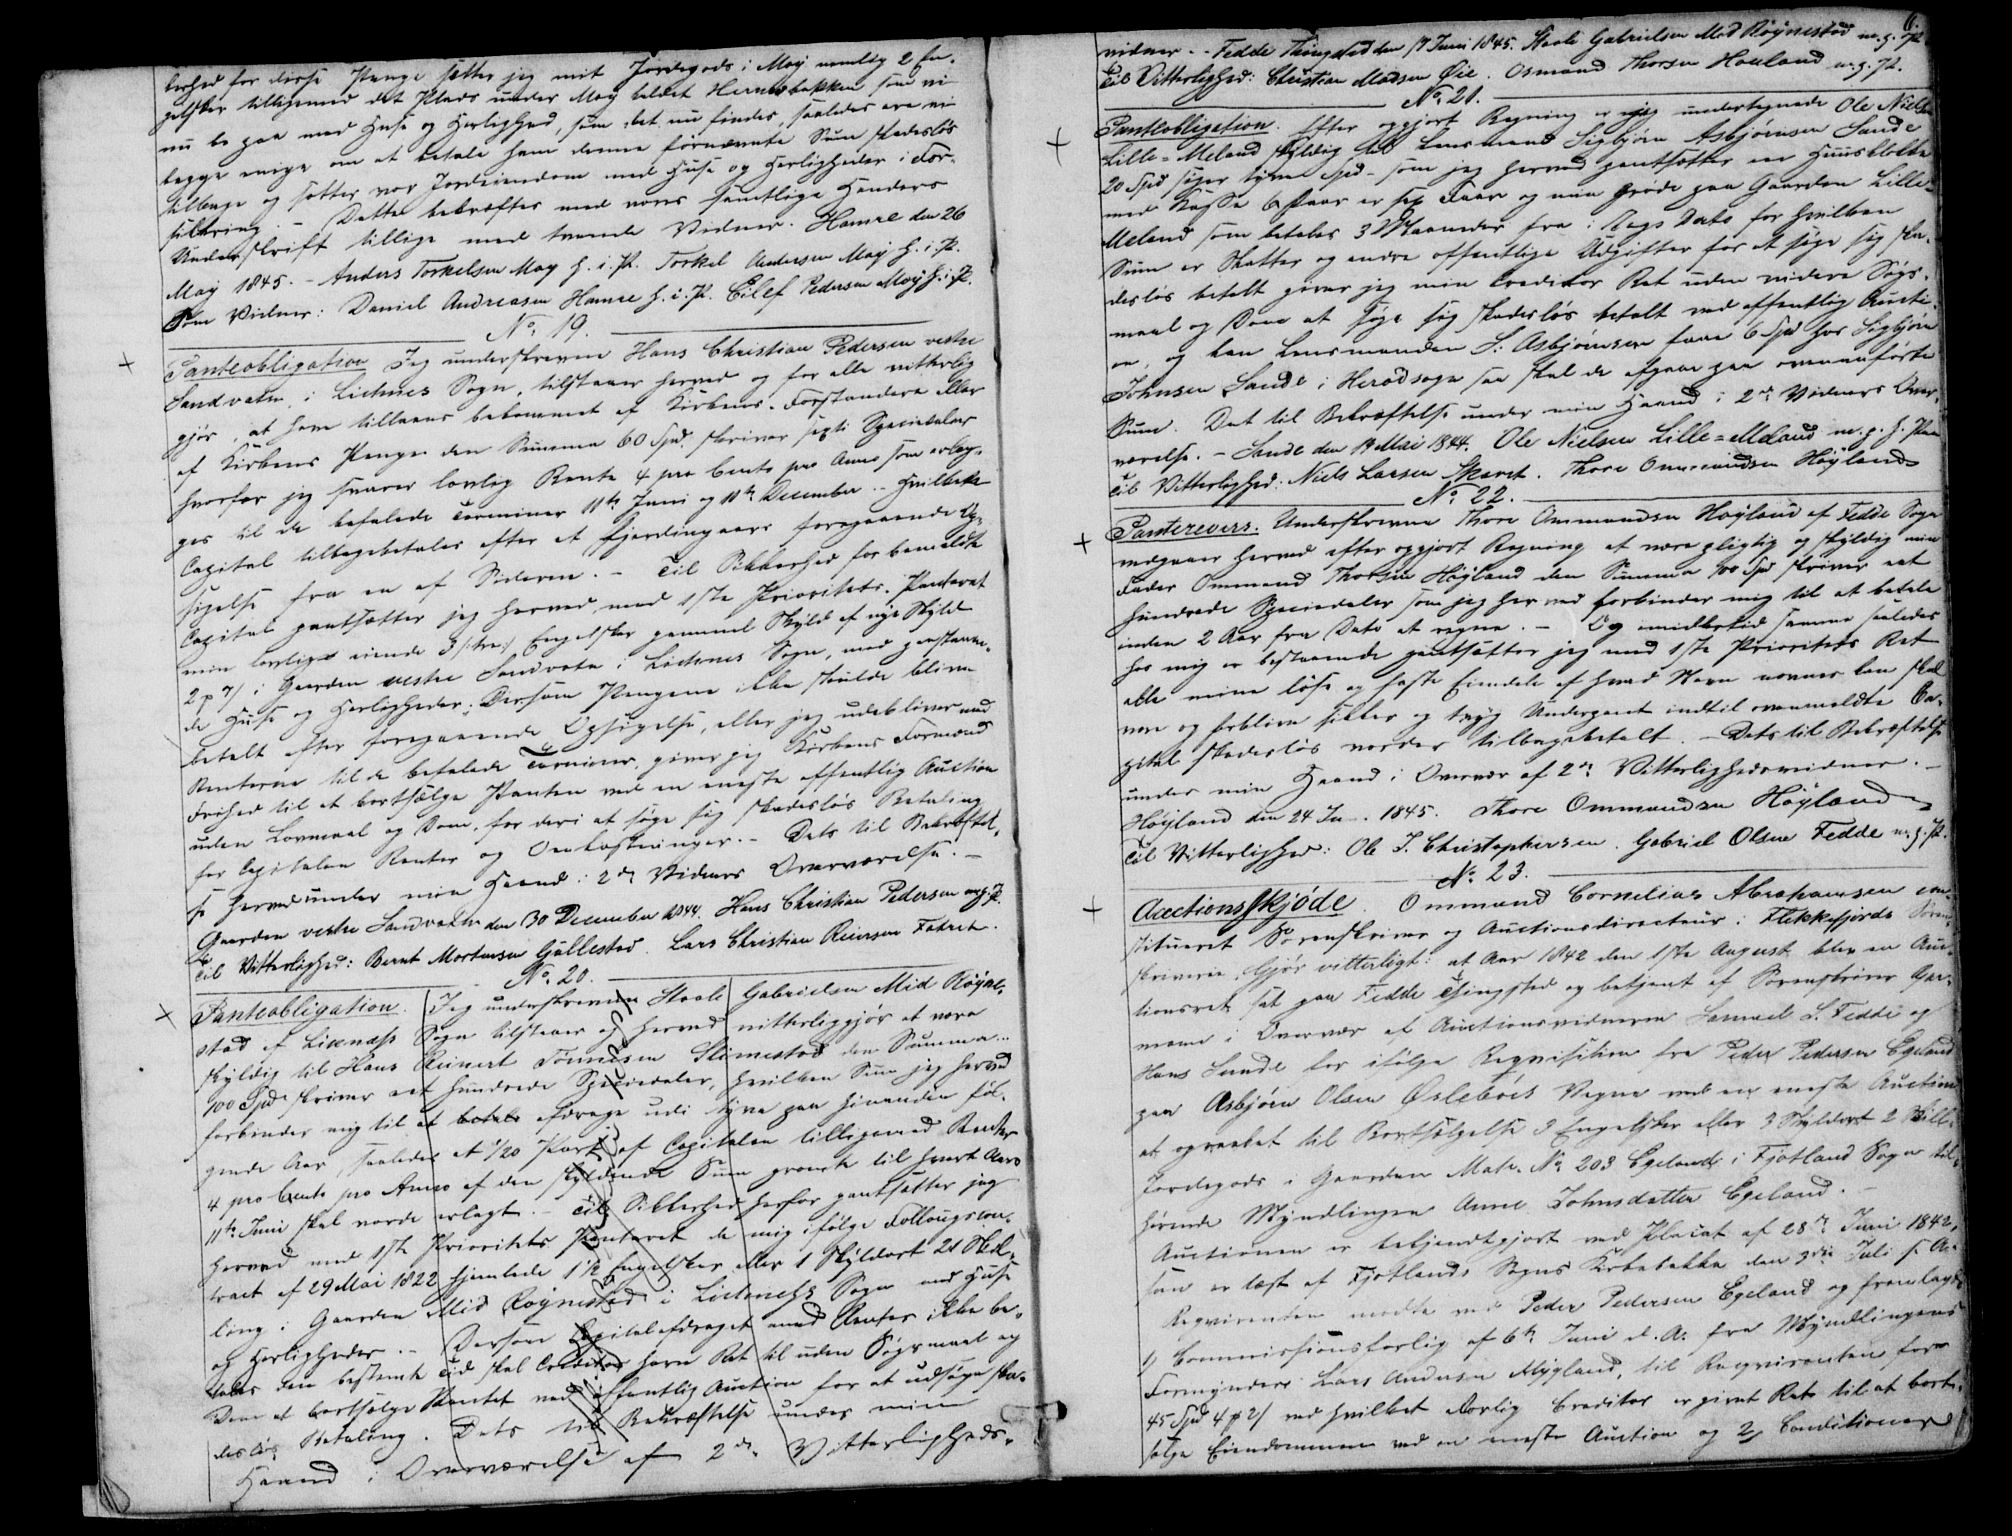 kerhed for disse Penge sætter jeg mit Jordegods i Moy nemlig 2 En-
gelsker tilligemed det Plads under Moy kaldet Hernesbakken som vi
nu bo paa med Huse og Herlighed, som det nu findes, saaledes ere vi
begge enige om at betale ham denne fornævnte Sum skadesløs
tilbage og sætter vor Jordeiendom med Huse og Herligheder i For-
sikkring. - Dette bekræftes med vores samtlige Hænders
Underskrift tillige med tvende Vidner. Hamre den 26
May 1845. - Anders Torkelsen Moy h. i. P. Torkel Andersen Moy h. i. P.
Som Vidner: Daniel Andreasen Hamre h. i. P. Eilef Pedersen Moy h. i. P.
No. 19.
Panteobligation Jeg underskrevne Hans Christian Pedersen vestre
Sandvatn i Liknes Sogn, tilstaaer herved og for alle vitterlig
gjør, at have tillaans bekommet af Kirkens Forstandere eller
af Kirkens Penge den Summa 60 Spd. skriver sexti Speciedaler
hvorfor jeg svarer lovlig Rente 4 pro Cento pro Anno som erlæg-
ges til de befalede Terminer 11te Juni og 11te December. - Hvilken
Capital tilbagebetales efter et fjerdingaars foregaaende Op-
sigelse fra en af Siderne. - Til Sikkerhed for bemeldte
Capital pantsætter jeg herved, med 1ste Prioritets Panteret
min lovlige eiende 3 /: tre:/ Engelsker gammel Skyld af nye Skyld
i Gaarden vestre Sandvatn i Liknes Sogn, med paastaaen-
de Huse og Herligheder. Dersom Pengene ikke skulde blive
betalt efter foregaaende Opsigelse, eller jeg udebliver med
Renterne til de befalede Terminer, giver jeg Kirkens Formænd
Frihed til at bortsælge Panten ved en eneste offentlig Auction
uden Lovmaal og Dom, for deri at søge sig skadesløs Betaling
for Capitalen Renter og Omkostninger. - Dets til Bekræftel-
se herved under min Haand i 2de Vidners Overværelse. -
Gaarden vestre Sandvatn den 30 December 1844. Hans Christian Pedersen m. p. P.
Til Vitterlighed: Bernt Mortensen Gullestad. Lars Christian Reiersen Fatret.
No. 20.
Panteobligation. Jeg underskrevne Staale Gabrielsen Mid Røyne-
stad af Liknæss Sogn tilstaaer og herved vitterliggjør at være
skyldig til Hans Reinert Tønnesen Stimestad den Summa
100 Spd. skriver eet hundrede Speciedaler, hvilken Sum jeg herved
forbinder mig til at betale afdrage udi tyve paa hinanden føl-
gende Aar, saaledes at 1/20 Part af Capitalen tilligemed Renter
4 pro Cento pro Anno af den skyldende Sum præcise til hvert Aars
11te Juni skal vorde erlagt. - Til Sikkerhed herfor pantsætter jeg
herved med 1ste Prioritets Panteret de mig ifølge Føllougscon-
tract af 29 Mai 1822 hjemlede 1 1/2 Engelsker eller 1 Skyldort 21 Skil-
ling i Gaarden Mid Røynestad i Liknæss Sogn med Huse
og Herligheder. - Dersom Capitalafdraget med Renter ikke be-
tales den bestemte Tid skal Creditor have Ret til uden Søgsmaal og
Dom at bortsælge Pantet ved offentlig Auction for at udsøge ska-
desløs Betaling. Dets til Bekræftelse under min
Haand i Overværelse af 2de Vitterligheds-
6.
vidner. - Fedde Thingsted den 17 Juni 1845. Staale Gabrielsen Mid Røynestad m. p. P.
Til Vitterlighed: Christian Madsen Øie. Osmund Thorsen Houland m. p. P.
No. 21.
Panteobligation. Efter oppgjort Regning er jeg undertegnede Ole Nielsen
Lille-Meland skyldig til Lensmand Sigbjørn Asbjørnsen Sande
20 Spd siger tyve Spd - som jeg herved pantsætter en Huusklokke
med Kasse 6 Faar er sex Faar og min Grøde paa Gaarden Lille-
Meland som betales 3 Maaneder fra i Dags Dato for hvilken
Sum er Skatter og andre offentlige Udgifter for at søge sig ska-
desløs betalt giver jeg min Creditor Ret uden videre Søgs-
maal og Dom at søge sig skadesløs betalt ved offentlig Aucti-
on, og kan Lensmanden S. Asbjørnsen faae 6 Spd hos Sigbjørn
Johnsen Sande i Herodsogn saa skal de afgaa paa ovenanførte
Sum. Det til Bekræftelse under min Haand i 2de Vidners Over-
værelse. - Sande den 14 Mai 1844. Ole Nielsen Lille-Meland m. p. h. Pen
Til Vitterlighed: Niels Larsen Skaret. Thore Ommundsen Höyland
No. 22.
Panterevers. Underskrevne Thore Ommundsen Høyland af Fedde Sogn
vedgaaer herved efter opgjort Regning at være pligtig og skyldig min
Fader Ommund Thorsen Höyland den Summa 100 Spd skriver eet
hundrede Speciedaler som jeg herved forbinder mig til at betale
inden 2 Aar fra Dato at regne. - Og imidlertid samme saaledes
hos mig er bestaaende pantsætter jeg med 1ste Prioritets Ret
alle mine løse og faste Eiendele af hvad Navn nævnes kan skal
være og forblive sikker og tryg Underpant indtil ovenmeldte Ca-
pital skadesløs vorder tilbagebetalt. - Dets til Bekræftelse
under min Haand i Overvær af 2de Vitterlighedsvidner. -
Höyland den 24 Ju-. 1845. Thore Ommundsen Höyland
Til Vitterlighed: Ole T. Christophersen. Gabriel Olsen Fedde m. p. P.
No. 23.
Auctionsskjøde. Ommund Cornelius Abrahamsen con-
stitueret Sorenskriver og Auctionsdirecteur i Flekkefjords Soren-
skriverie, Gjør vitterligt: at Aar 1842 den 1ste August blev en Auc-
tionsret sat paa Fedde Thingsted og betjent af Sorenskriver
i Overvær af Auctionsvidnerne Samuel S. Fedde og
Hans Sunde for ifølge Reqvisition fra Peder Pedersen Egeland
paa Asbjørn Olsen Øslebøes Vegne ved en eneste Auction
at opraabet til Bortsælgelse 3 Engelsker eller 3 Skyldort 2 Skill.
Jordegods i Gaarden Matr. No. 203 Egeland i Fjotland Sogn til-
hørende Myndlingen Anne Johnsdatter Egeland. -
Auctionen er bekjendtgjort ved Placat af 28de Juni 1842,
som er læst af Fjotlands Sogns Kirkebakke den 3die Juli s. A.
Reqvirenten mødte ved Peder Pedersen Egeland og fremlagde
1) Commissionsforlig af 6te Juni d. A. fra Myndlingens
Formynder Lars Andersen Mygland, til Reqvirenten for
45 Spd ved hvilket Forlig Creditor er givet Ret til at bort-
sælge Eiendommen ved en eneste Auction og 2) Conditioner